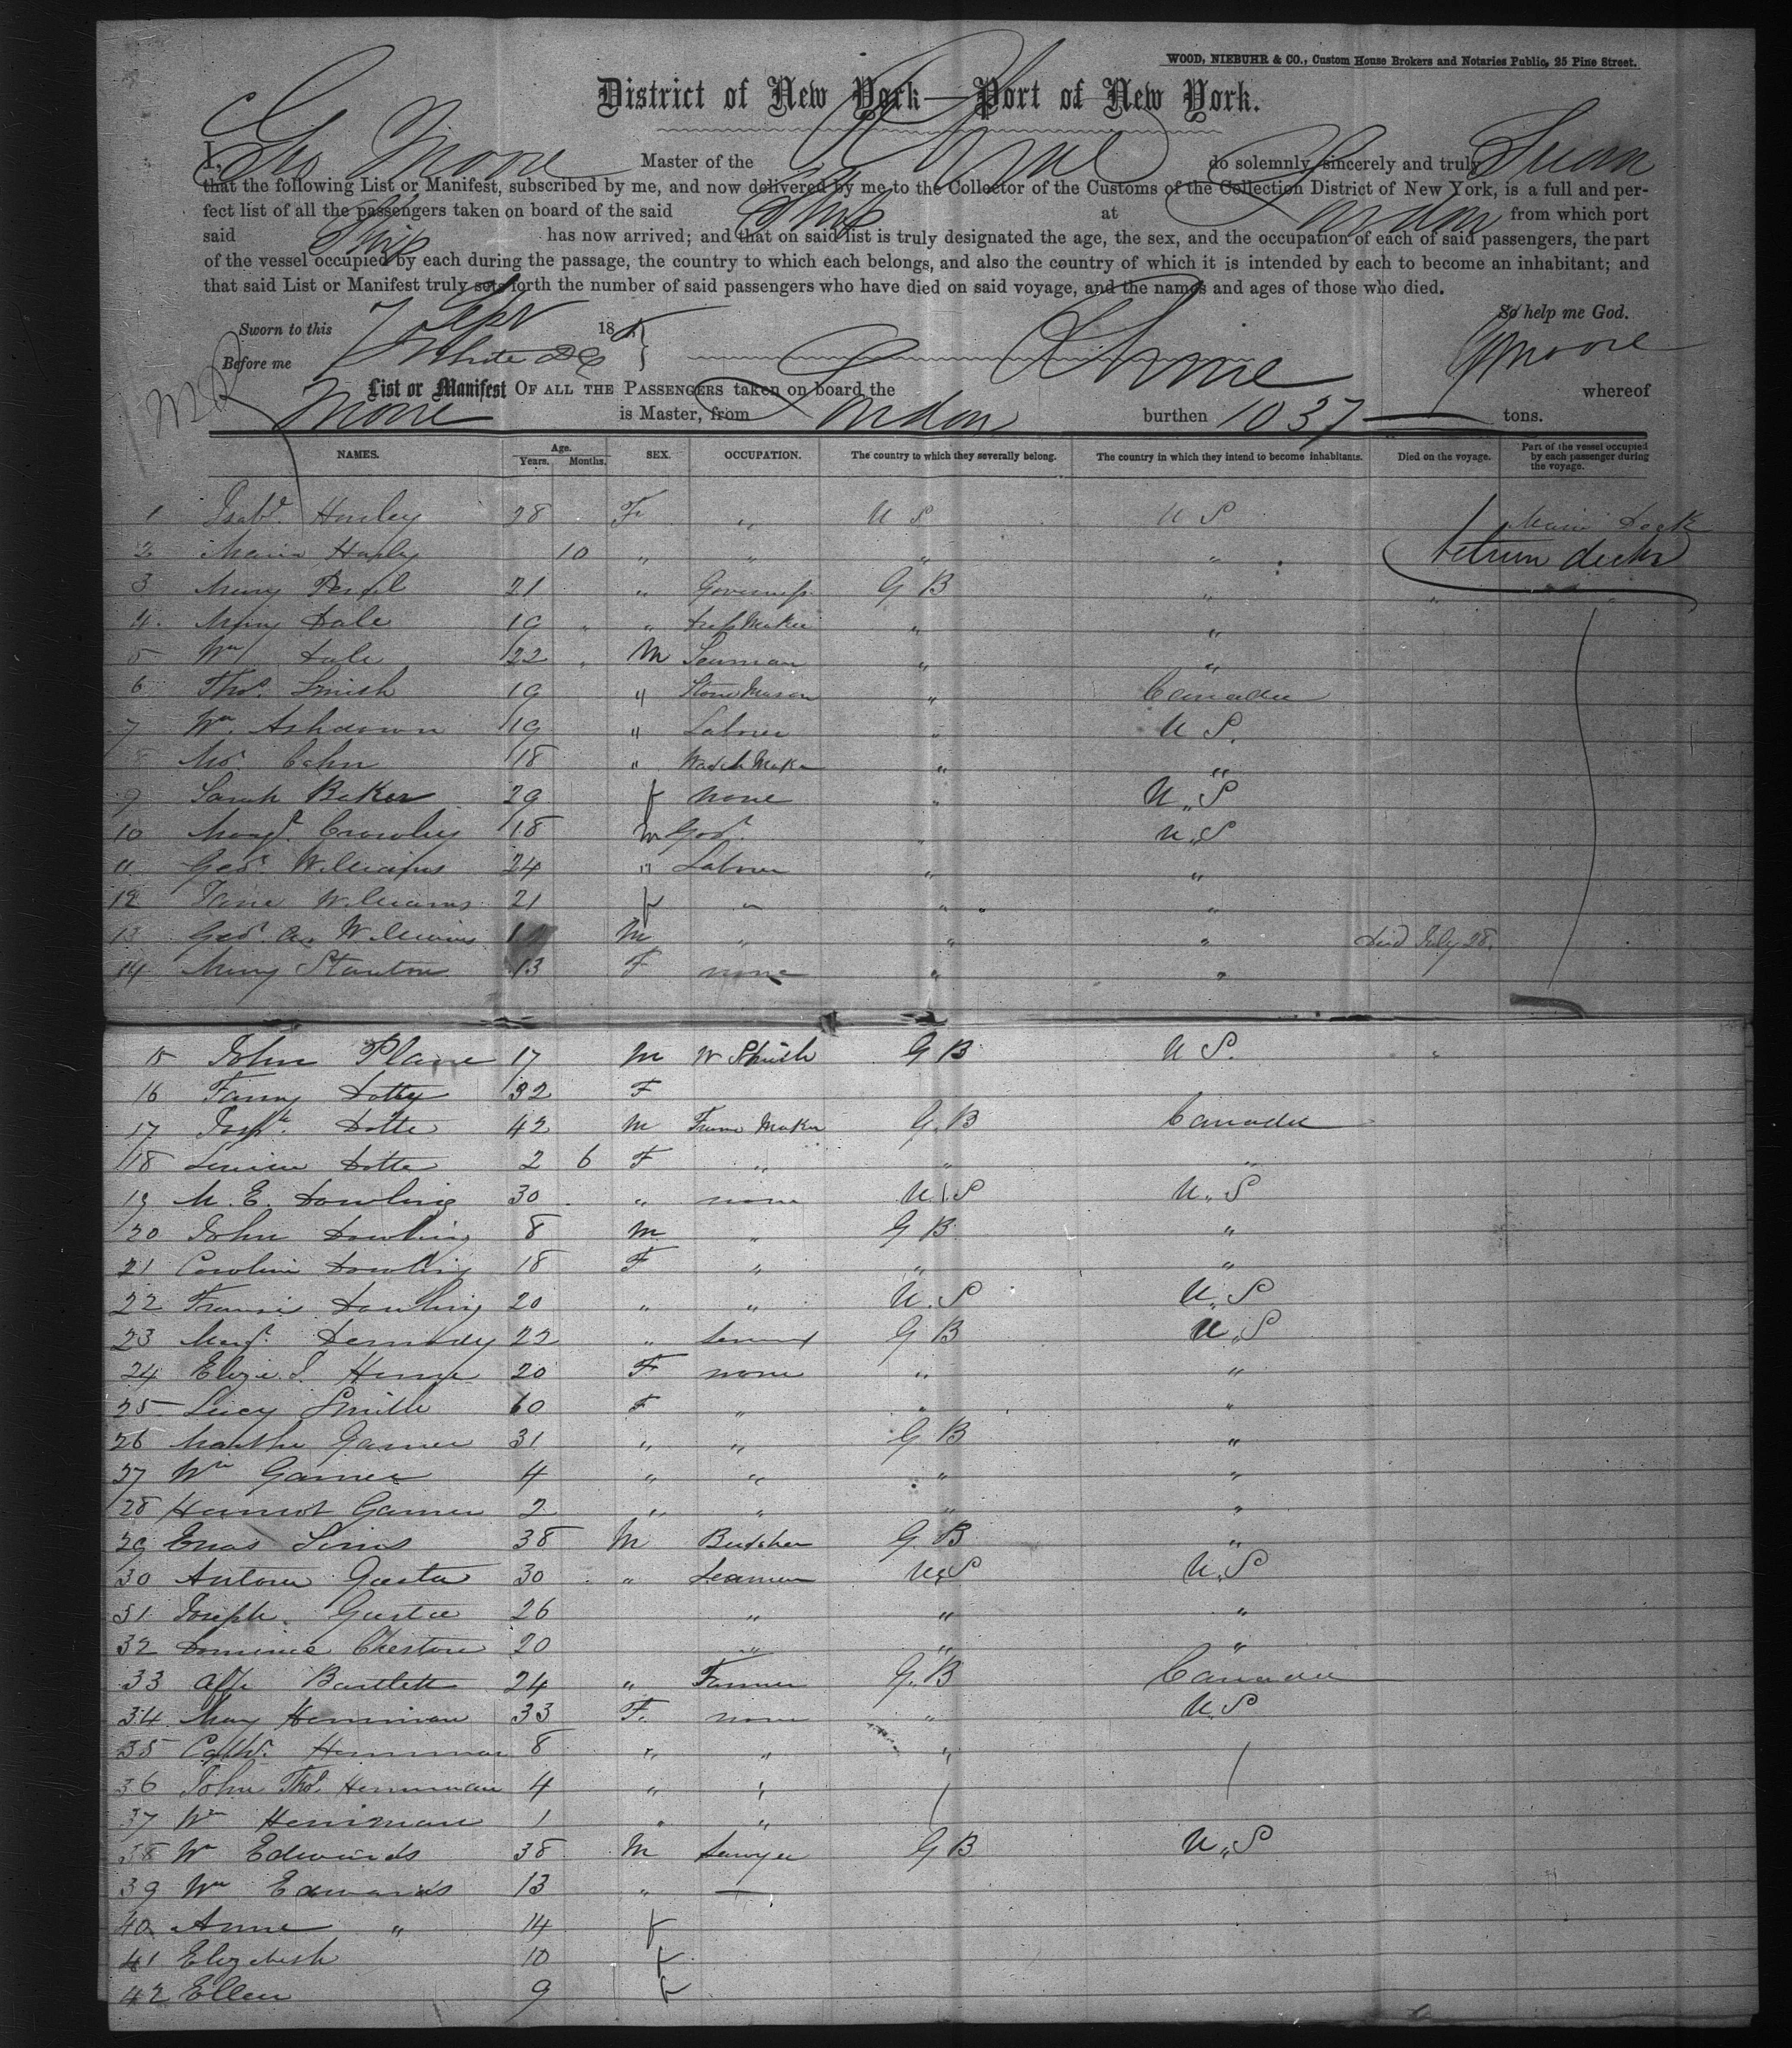 WOOD, NIEBUHR & CO., Custom House Brokers and Notaries Public, 25 Pine Street.
District of New York—Port of New York.
I, Geo Moore Master of the Rhine do solemnly, sincerely and truly Swear
that the following List or Manifest, subscribed by me, and now delivered by me to the Collector of the Customs of the Collection District of New York, is a full and per-
fect list of all the passengers taken on board of the said Ship at London from which port
said Ship has now arrived; and that on said list is truly designated the age, the sex, and the occupation of each of said passengers, the part
of the vessel occupied by each during the passage, the country to which each belongs, and also the country of which it is intended by each to become an inhabitant; and
that said List or Manifest truly sets forth the number of said passengers who have died on said voyage, and the names and ages of those who died.
So help me God.
Sworn to this 7 Sept 186
Before me White DC
G Moore
List or Manifest OF ALL THE PASSENGERS taken on board the Rhine whereof
Moore is Master, from London burthen 1037 tons.
NAMES. Age. Years. Months. SEX. OCCUPATION. The country to which they severally belong. The country in which they intend to become inhabitants. Died on the voyage. Part of the vessel occupied by each passenger during the voyage.
1 Isab. 28 F " U S U S Main Deck
2 10 " " " " between decks
3 Mary 21 " Governess G B " " "
4 Mary Dale 19 " " Dress Maker " "
5 Wm Dale 22 " M Seaman " "
6 Thos. Smith 19 " Stone Mason " Canada
7 Wm Ashdown 19 " Laborer " U S.
8 Cahn 18 " Watch Maker " "
9 Sarah Baker 29 F none " U. S
10 Margt. Crowley 18 M " U. S
11 Geo. Williams 24 " Laborer " "
12 Jane Williams 21 F " " "
13 Geo. Williams M " " " Died July 28.
14 Mary Stanton 13 F none " "
15 John Plane 17 M W Smith G B U S. "
16 Fanny Dotte 32 F
17 Josph. Dotte 42 M Frame Maker G. B Canada
18 Louisa Dotte 2 6 F " " "
19 M. E. Dowling 30 " none U. S U. S
20 John Dowling 8 M " G B "
21 Caroline Dowling 18 F " " "
22 Dowling 20 " " U. S U. S
23 Margt. 22 " Servant G B U. S
24 Eliza S. 20 F none " "
25 Lucy Smith 60 F " " "
26 Martha Garner 31 " " G B "
27 Wm Garner 4 " " " "
28 Garner 2 " " " "
29 Enos Sims 38 M Butcher G B "
30 30 " Seaman U S U. S
31 Joseph 26 " " "
32 20 " " "
33 Bartlett 24 " Farmer G. B Canada
34 Mary Herriman 33 F. none " U. S
35 Cath. Herriman 8 " " "
36 John Thos. Herriman 4 " "
37 Wm Herriman 1 " "
38 Wm Edwards 38 M Sawyer G B U. S
39 Wm Edwards 13 " —
40 Anne " 14 F
41 Elizabeth 10 F
42 Ellen 9 F